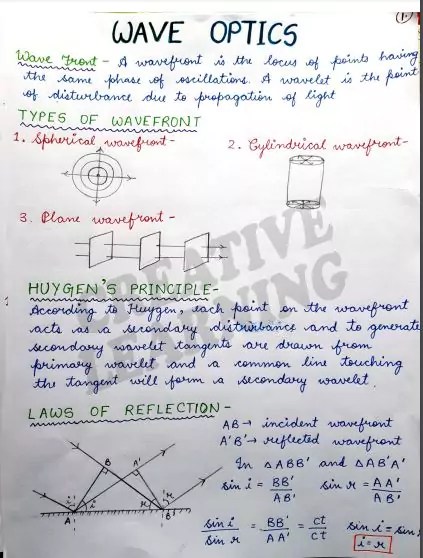 1
WAVE OPTICS
Wave Front - A wavefront is the locus of points having
the same phase of oscillations. A wavelet is the point
of disturbance due to propagation of light
TYPES OF WAVEFRONT
1. Spherical wavefront-
2. Cylindrical wavefront-
3. Plane wavefront -
CREATIVE
LEARNING
HUYGEN'S PRINCIPLE-
According to Huygen, each point on the wavefront
acts as a secondary disturbance and to generate
secondary wavelet tangents are drawn from
primary wavelet and a common line touching
the tangent will form a secondary wavelet.
LAWS OF REFLECTION -
AB → incident wavefront
A'B' → reflected wavefront
In △ABB' and △AB'A'
sin i = BB'/AB' sin r = AA'/AB'
B A'
i i r r
A B'
sin i/sin r = BB'/AA' = ct/ct sin i = sin
i = r